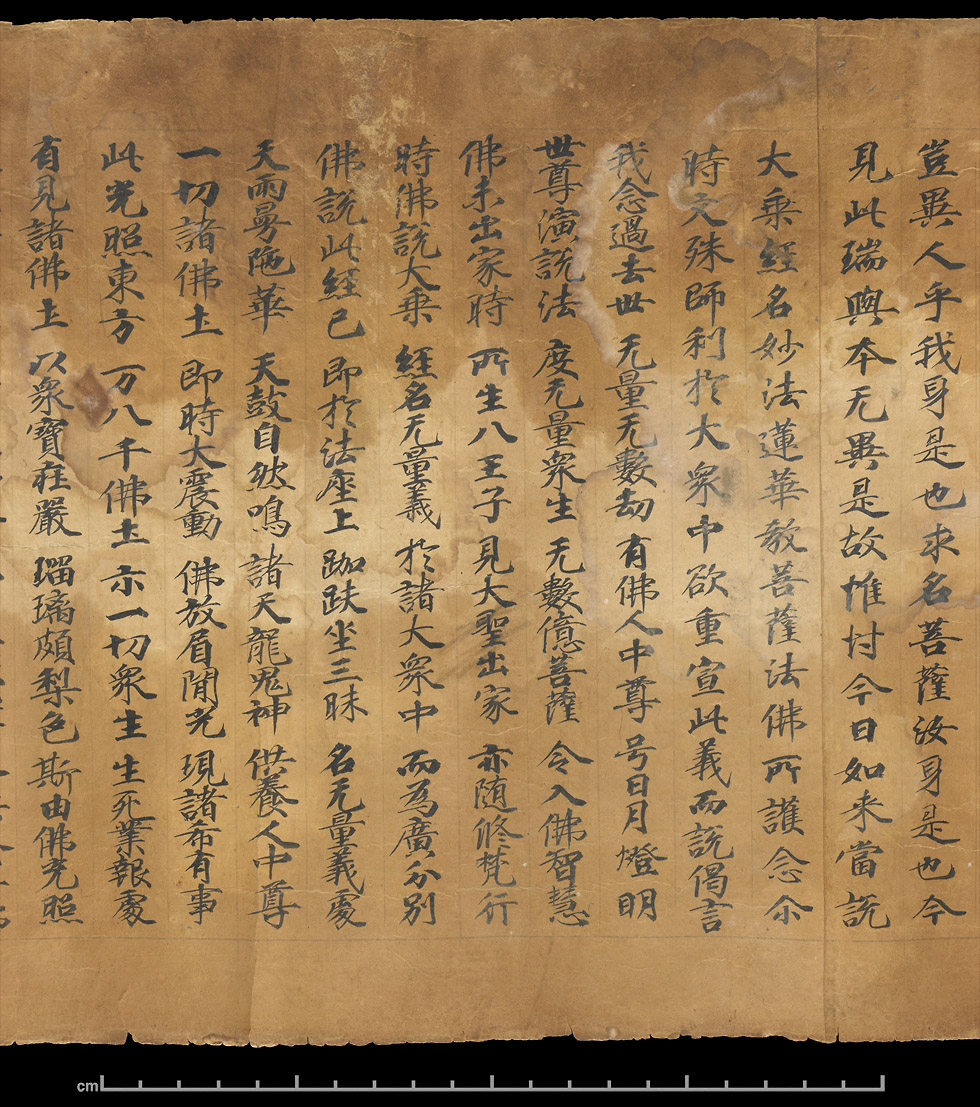 豈異人乎我身是也求名菩薩汝身是也今
見此瑞與本无異是故惟忖今日如来當說
大乗經名妙法蓮華教菩薩法佛所護念尒
時文殊師利扵大衆中欲重宣此義而說偈言
我念過去世 无量无數劫 有佛人中尊 号日月燈明
世尊演說法 度无量衆生 无數億菩薩 令入佛智慧
佛未出家時 所生八王子 見大聖出家 亦随修梵行
時佛說大乗 經名无量義 扵諸大衆中 而為廣分別
佛說此經已 即扵法座上 跏趺坐三昧 名无量義處
天雨曼陁華 天鼓自然鳴 諸天龍鬼神 供養人中尊
一切諸佛土 即時大震動 佛放眉間光 現諸希有事
此光照東方 万八千佛土 示一切衆生 生死業報處
有見諸佛土 以衆寶莊嚴 瑠璃頗梨色 斯由佛光照